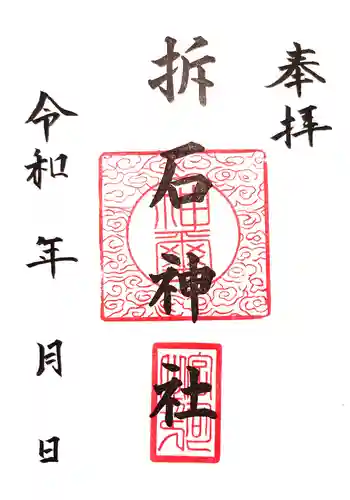 奉拝
拆石神社
令和 年 月 日